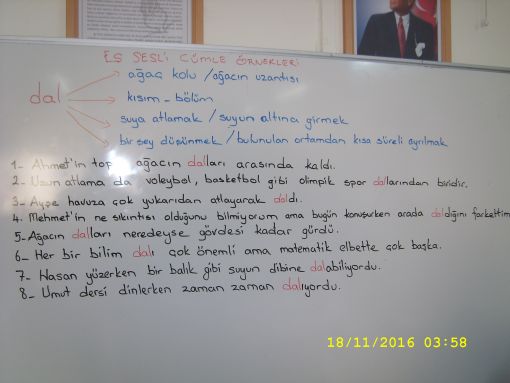 EŞ SESLİ CÜMLE ÖRNEKLERİ
dal
ağaç kolu / ağacın uzantısı
kısım - bölüm
suya atlamak / suyun altına girmek
bir şey düşünmek / bulunulan ortamdan kısa süreli ayrılmak
1- Ahmet'in top ağacın dalları arasında kaldı.
2- Uzun atlama da voleybol, basketbol gibi olimpik spor dallarından biridir.
3- Ayşe havuza çok yukarıdan atlayarak daldı.
4. Mehmet'in ne sıkıntısı olduğunu bilmiyorum ama bugün konuşurken arada daldığını farkettim
5- Ağacın dalları neredeyse gövdesi kadar gürdü.
6- Her bir bilim dalı çok önemli ama matematik elbette çok başka.
7- Hasan yüzerken bir balık gibi suyun dibine dalabiliyordu.
8- Umut dersi dinlerken zaman zaman dalıyordu.
18/11/2016 03:58